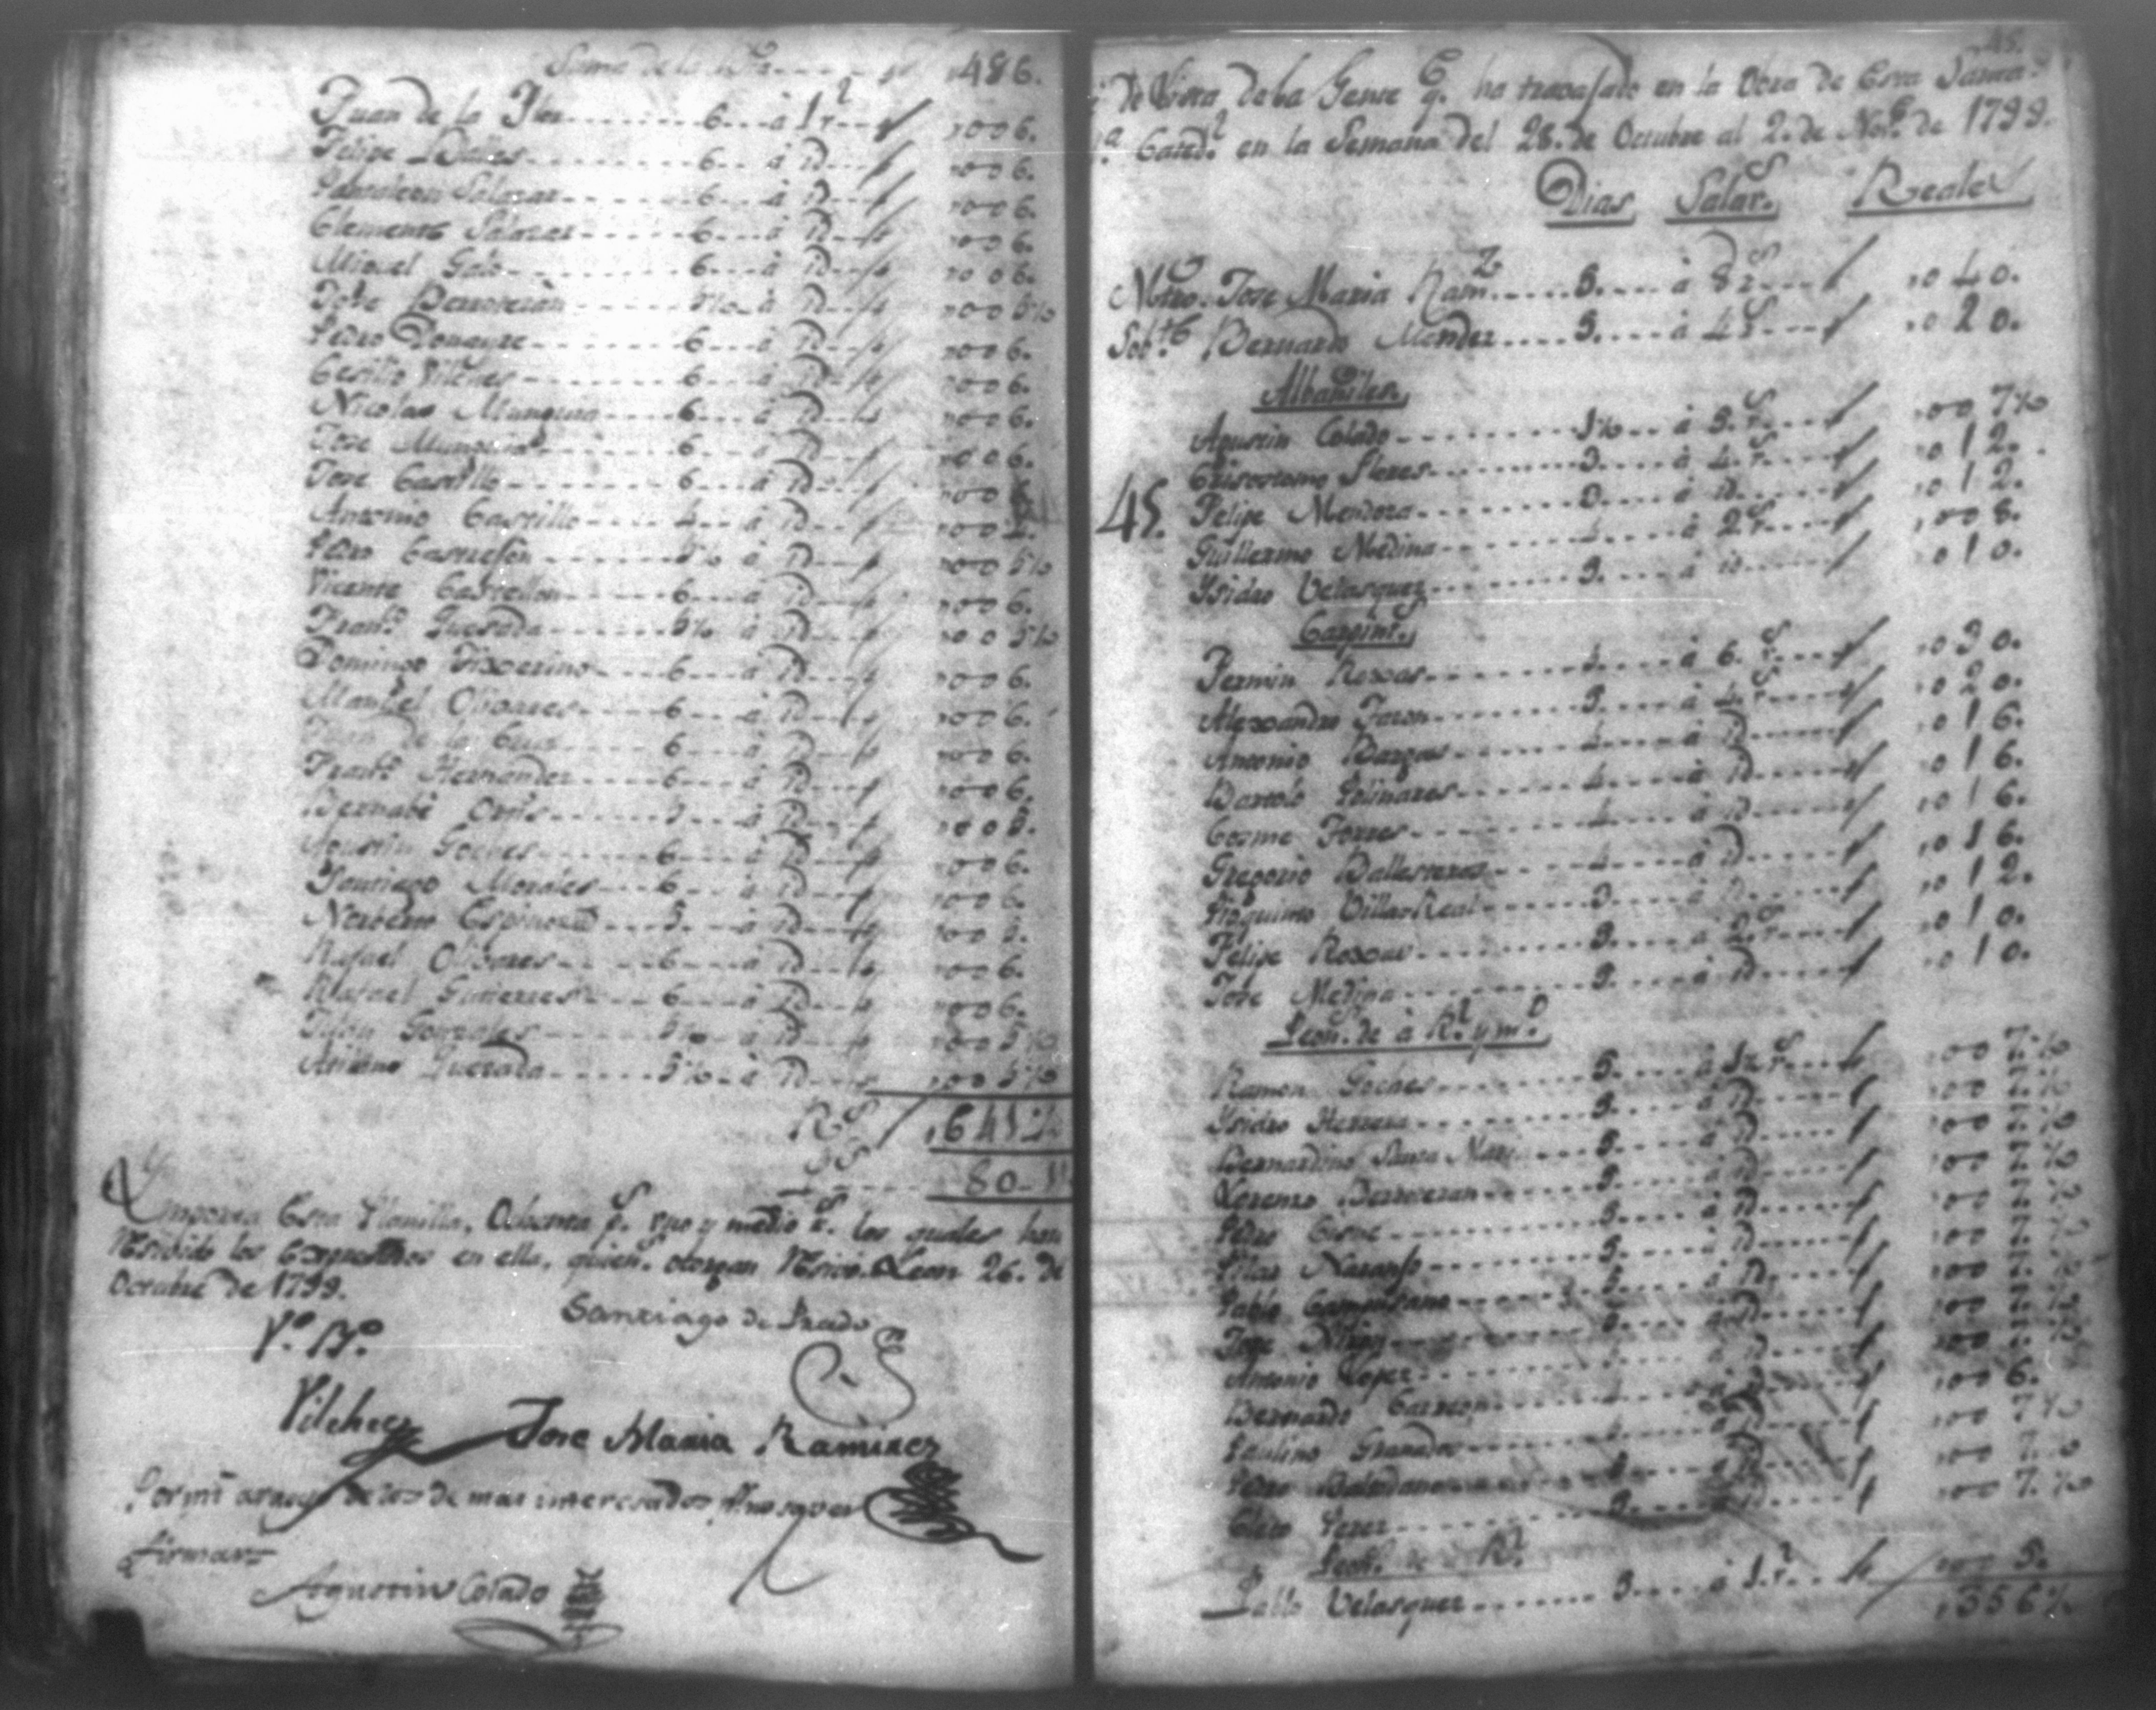 Suma de la 486.
Juan de la 6 à 1 r.l 006.
Felipe 6 à id 006.
Pantaleon Salazar 6 à id 006.
Clemente Salazar 6 à id 006.
Miguel Galo 6 à id 006.
Jose Berroteran 5½ à id 005½
Pedro Donayre 6 à id 006.
Cecilio Vilches 6 à id 006.
Nicolas Munguia 6 à id 006.
Jose Munguia 6 à id 006.
Jose Castillo 6 à id 006.
Antonio Castillo 4 à id 004.
Pedro Castrejon 5½ à id 005½
Vicente Castrellon 6 à id 006.
Fran.co Quesada 5½ à id 005½
Domingo 6 à id 006.
Manuel Olivares 6 à id 006.
Juan de la Cruz 6 à id 006.
Fran.co Hernandez 6 à id 006.
Bernabe Ortis 3 à id 003.
Agustin Goches 6 à id 006.
Santiago Morales 6 à id 006.
Norberto Espinoza 3 à id 003.
Rafael Olivares 6 à id 006.
Rafael Gutierres 6 à id 006.
Gonzales 5½ à id 005½
Antonio Quezada 5½ à id 005½
R.s 641½
80-1½
Importa Esta Planilla, Ochenta p.s uno y medio r.s los quales han
Resivido los Expuestos en ella, quien.s otorgan Resivo. Leon 26. de
Octubre de 1799.
Santiago de Prado
V.o B.o
Vilchez Jose Maria Ramirez
Por mi a ruego de los de mas interesados p.r no saver
firmar
Agustin Colado
45.
de Lista de la Gente q.e ha travajado en la Obra de Esta Santa
Cated.l en la Semana del 28. de Octubre al 2. de Nov.e de 1799.
Dias Salar.s Reales
Mtro. Jose Maria Ram.z 5. à 8 r.s 040.
Sob.te Bernardo Mendez 5. à 4 r.s 020.
Albañiles
Agustin Colado 1½ à 5. r.s 007½
Crisostomo Flores 3. à 4. r.s 012.
45. Felipe Mendoza 3. à id. 012.
Guillermo Medina 4. à 2 r.s 008.
Ysidro Velasquez 5. à id. 010.
Carpint.s
Fermin Roxas 5. à 6. r.s 030.
Alexandro Faron 5. à 4. r.s 020.
Antonio Bargas 4. à id 016.
Bartolo Polinares 4. à id 016.
Cosme Torres 4. à id 016.
Gregorio Ballesteros 4. à id 016.
Villa-Real 3. à id. 012.
Felipe Roxas 5. à 2. r.s 010.
Jose Medina 5. à id 010.
Peon.s de à R.l y m.o
Ramon Goches 5. à 1½ r.s 007.½
Ysidro Herrera 5. à id 007.½
Bernardino Santa Maria 5. à id 007.½
Lorenzo Berroteran 5. à id 007.½
Pedro 5. à id 007.½
Pilar Naranjo 5. à id 007.½
Pablo 5. à id. 007.½
Jose 5. à id 007.½
Antonio Lopez 007.½
Bernardo 4 006.
Paulino Granados 5. à id 007½
Pedro à id 007.½
Perez 5. à id 007.½
Peon.s de à R.l
Pablo Velasquez 5. à 1. r.l 005.
356½